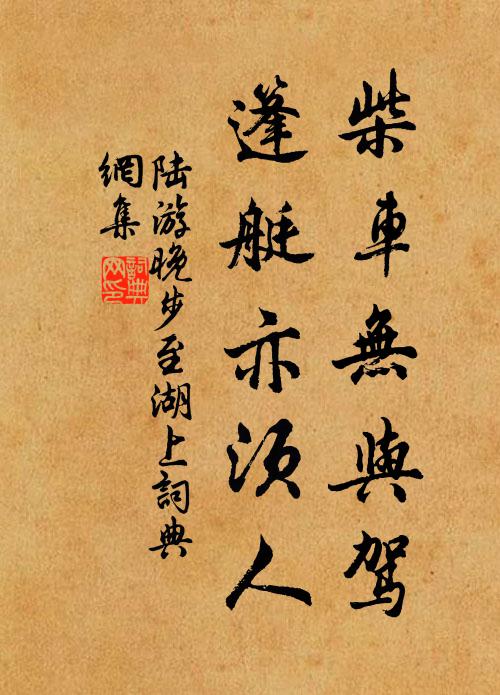 柴車無與駕
蓬艇亦須人
陸游晚步至湖上詞典
網集
詞典
网印